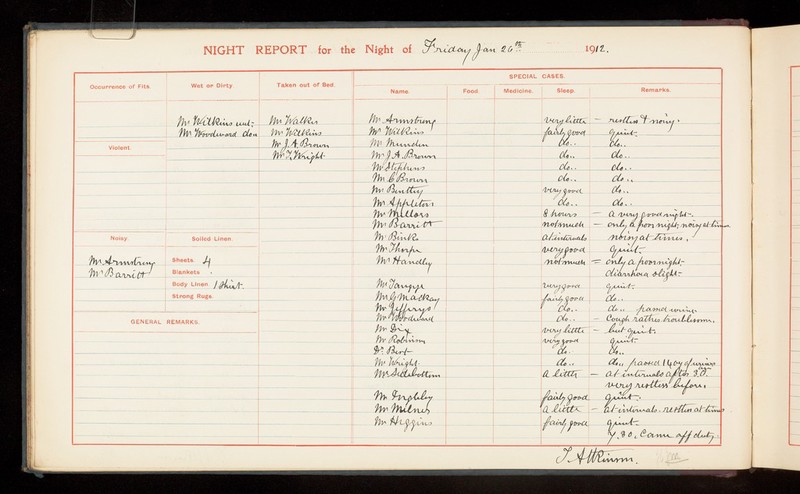 NIGHT REPORT for the Night of Friday Jan 26th 1912.
SPECIAL CASES.
Occurrence of Fits. Wet or Dirty. Taken out of Bed. Name. Food. Medicine. Sleep. Remarks.
Mr Wilkins wet. Mr Walker Mr Armstrong very little – restless & noisy.
Mr Woodward do Mr Wilkins Mr Wilkins fairly good quiet.
Violent. Mr J.A. Brown Mr Munden do.. do..
Mr J. Wright Mr J.A. Brown do.. do..
Mr Stephens do.. do..
Mr C Brown do.. do..
Mr Bentley very good do..
Mr Appleton do.. do..
Mr Mellors 8 hours – a very good night.
Mr Barritt not much – only a poor night, noisy at times
Noisy. Soiled Linen. Mr Binks at intervals noisy at times.
Mr Thorpe very good quiet.
Mr Armstrong Sheets 4 Mr Handley not much = only a poor night
Mr Barritt Blankets diarrhoea slight
Body Linen 1 Shirt. very good quiet.
Strong Rugs Mr G Mackay fairly good do..
Mr Jefferys do.. do.. passed urine
GENERAL REMARKS. Mr Woodward do.. – Cough rather troublesome.
very little – but quiet.
Mr Robinson very good quiet
do. do..
Mr Wright do.. do.. passed 14 oz of urine
Mr Sidebottom a little – at intervals after 3.0.
very restless before.
fairly good quiet.
Mr Milnes a little – at intervals. restless at times
Mr Higgins fairly good quiet.
Came off duty.
J. Atkinson.